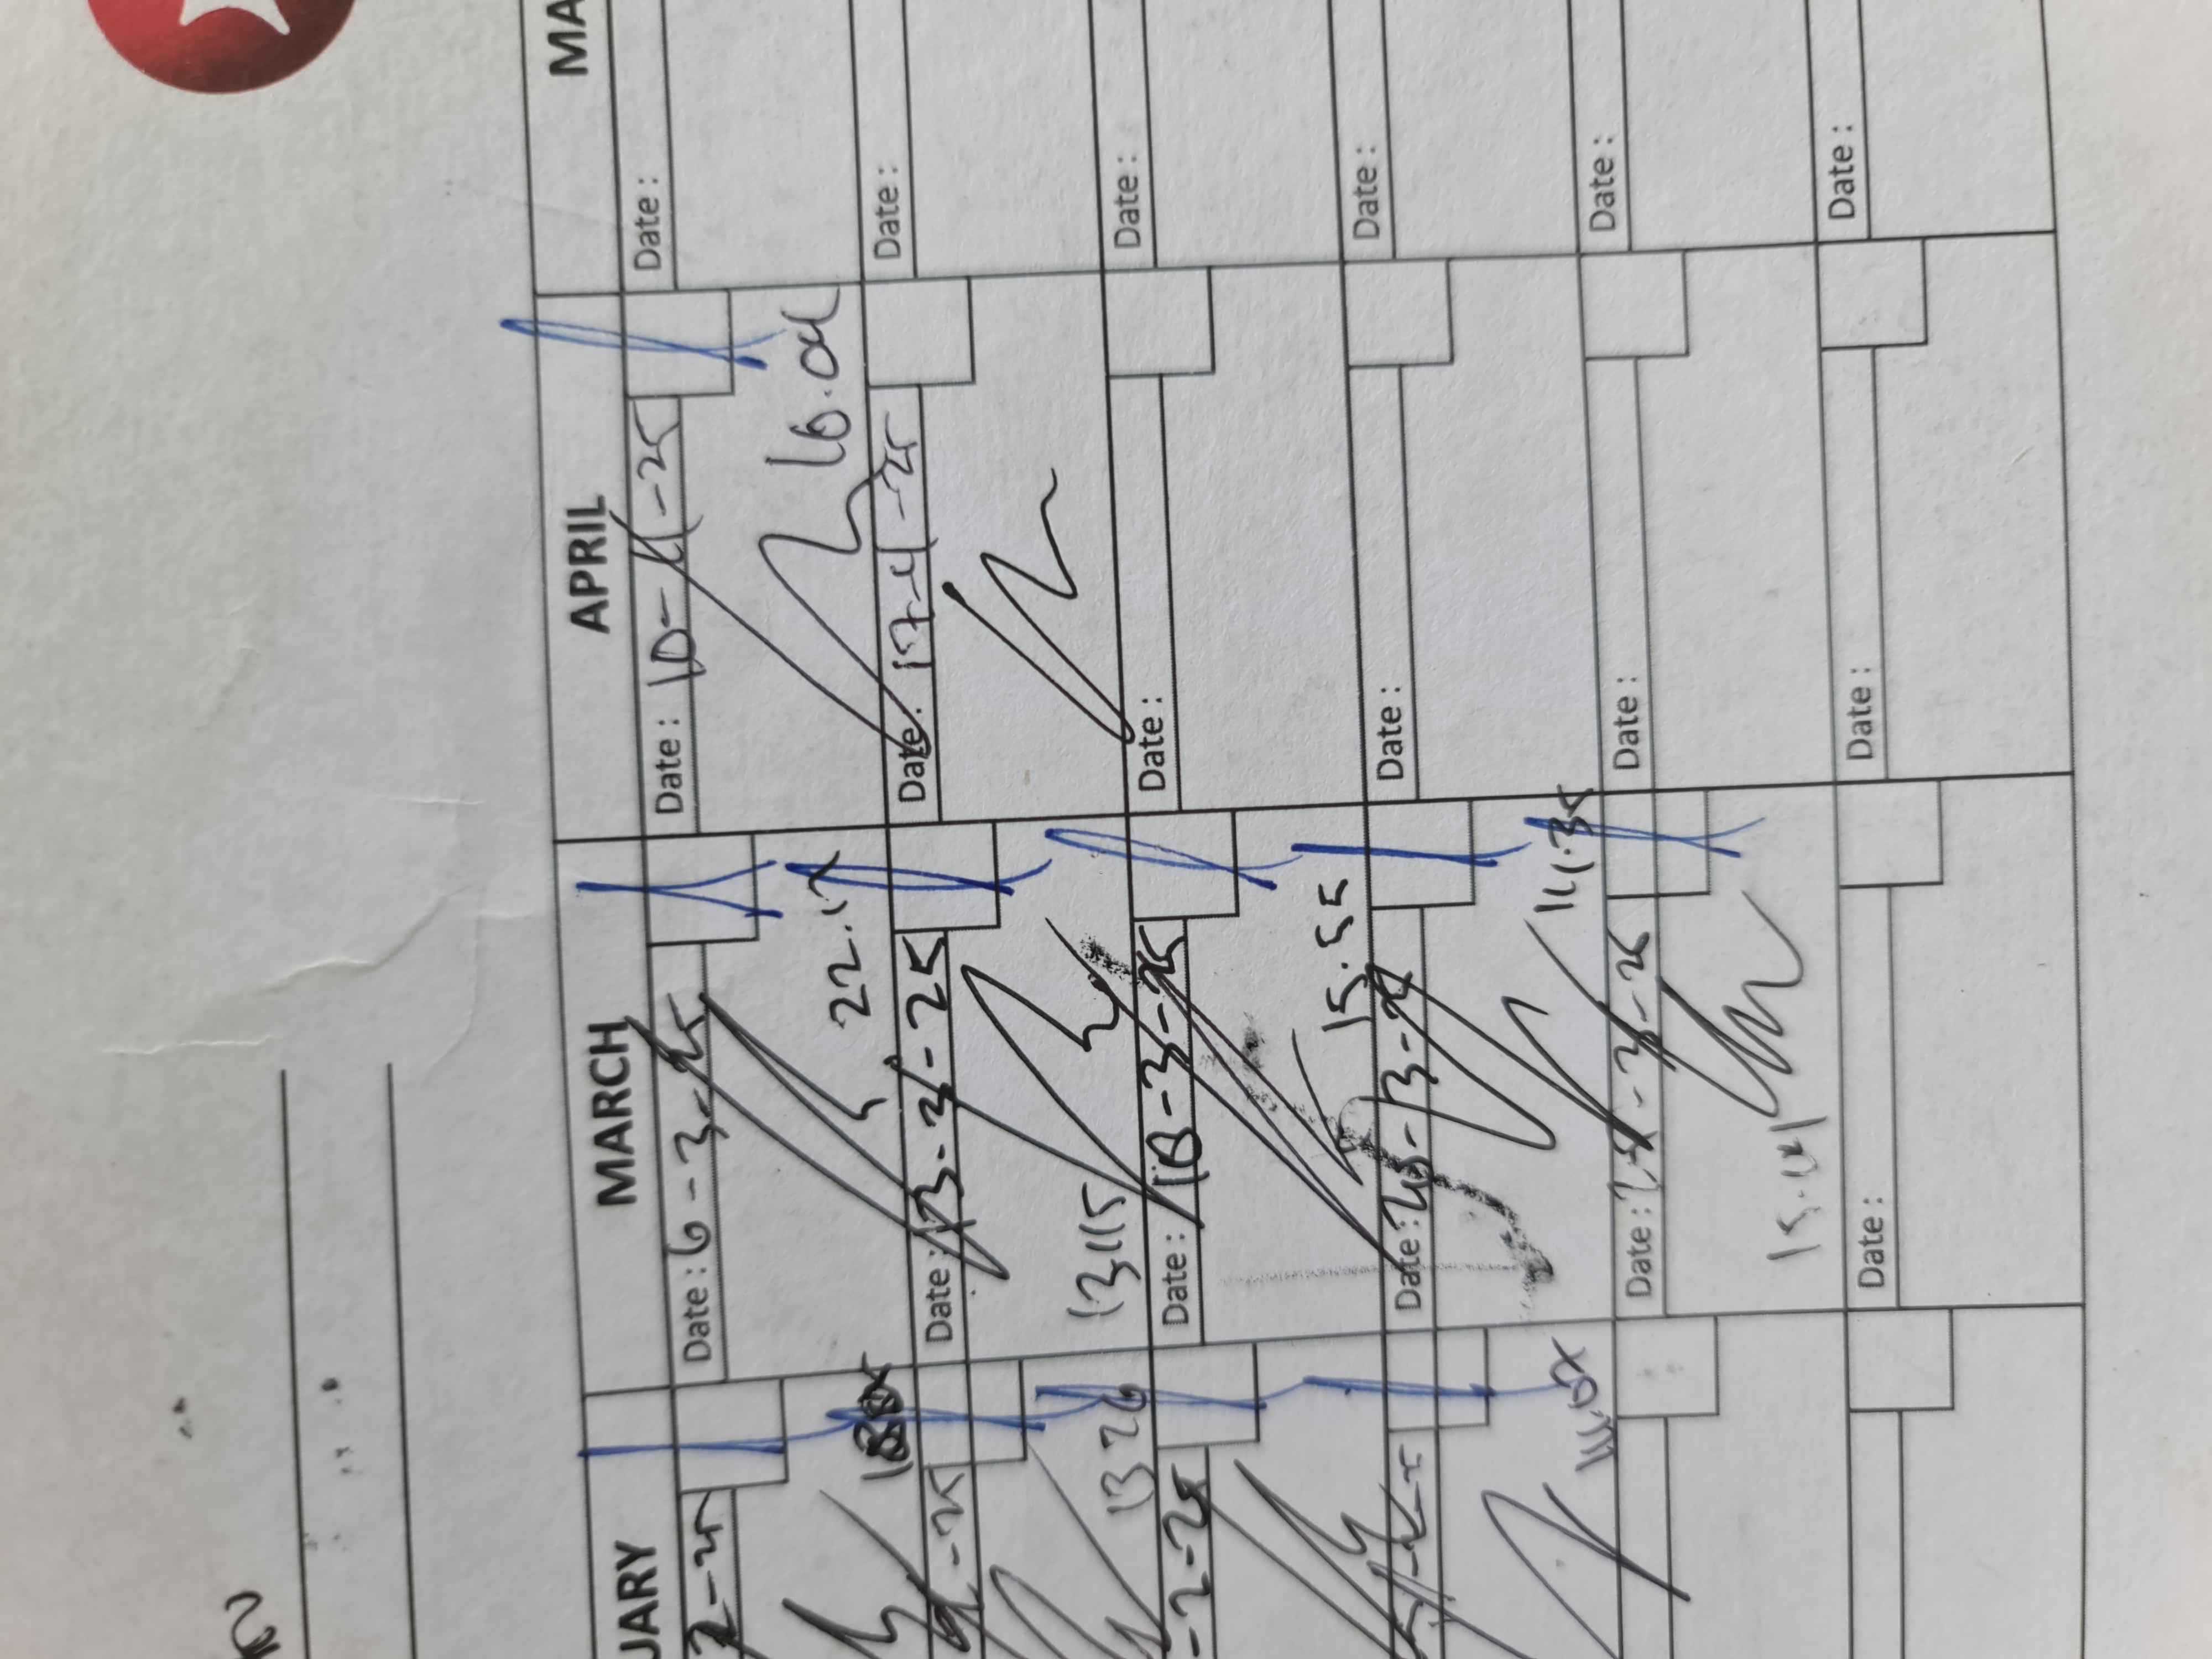 UARY
MARCH
APRIL
MA
2-25
Date : 6-3-25
Date : 10-4-25
Date :
22.17
16.04
-25
Date : 13-3-25
Date : 17-4-25
Date :
13 26
13 15
-2-25
Date : 18-3-25
Date :
Date :
15.55
Date : 23-3-25
Date :
Date :
14.35
Date : 28-3-25
Date :
Date :
15.41
Date :
Date :
Date :